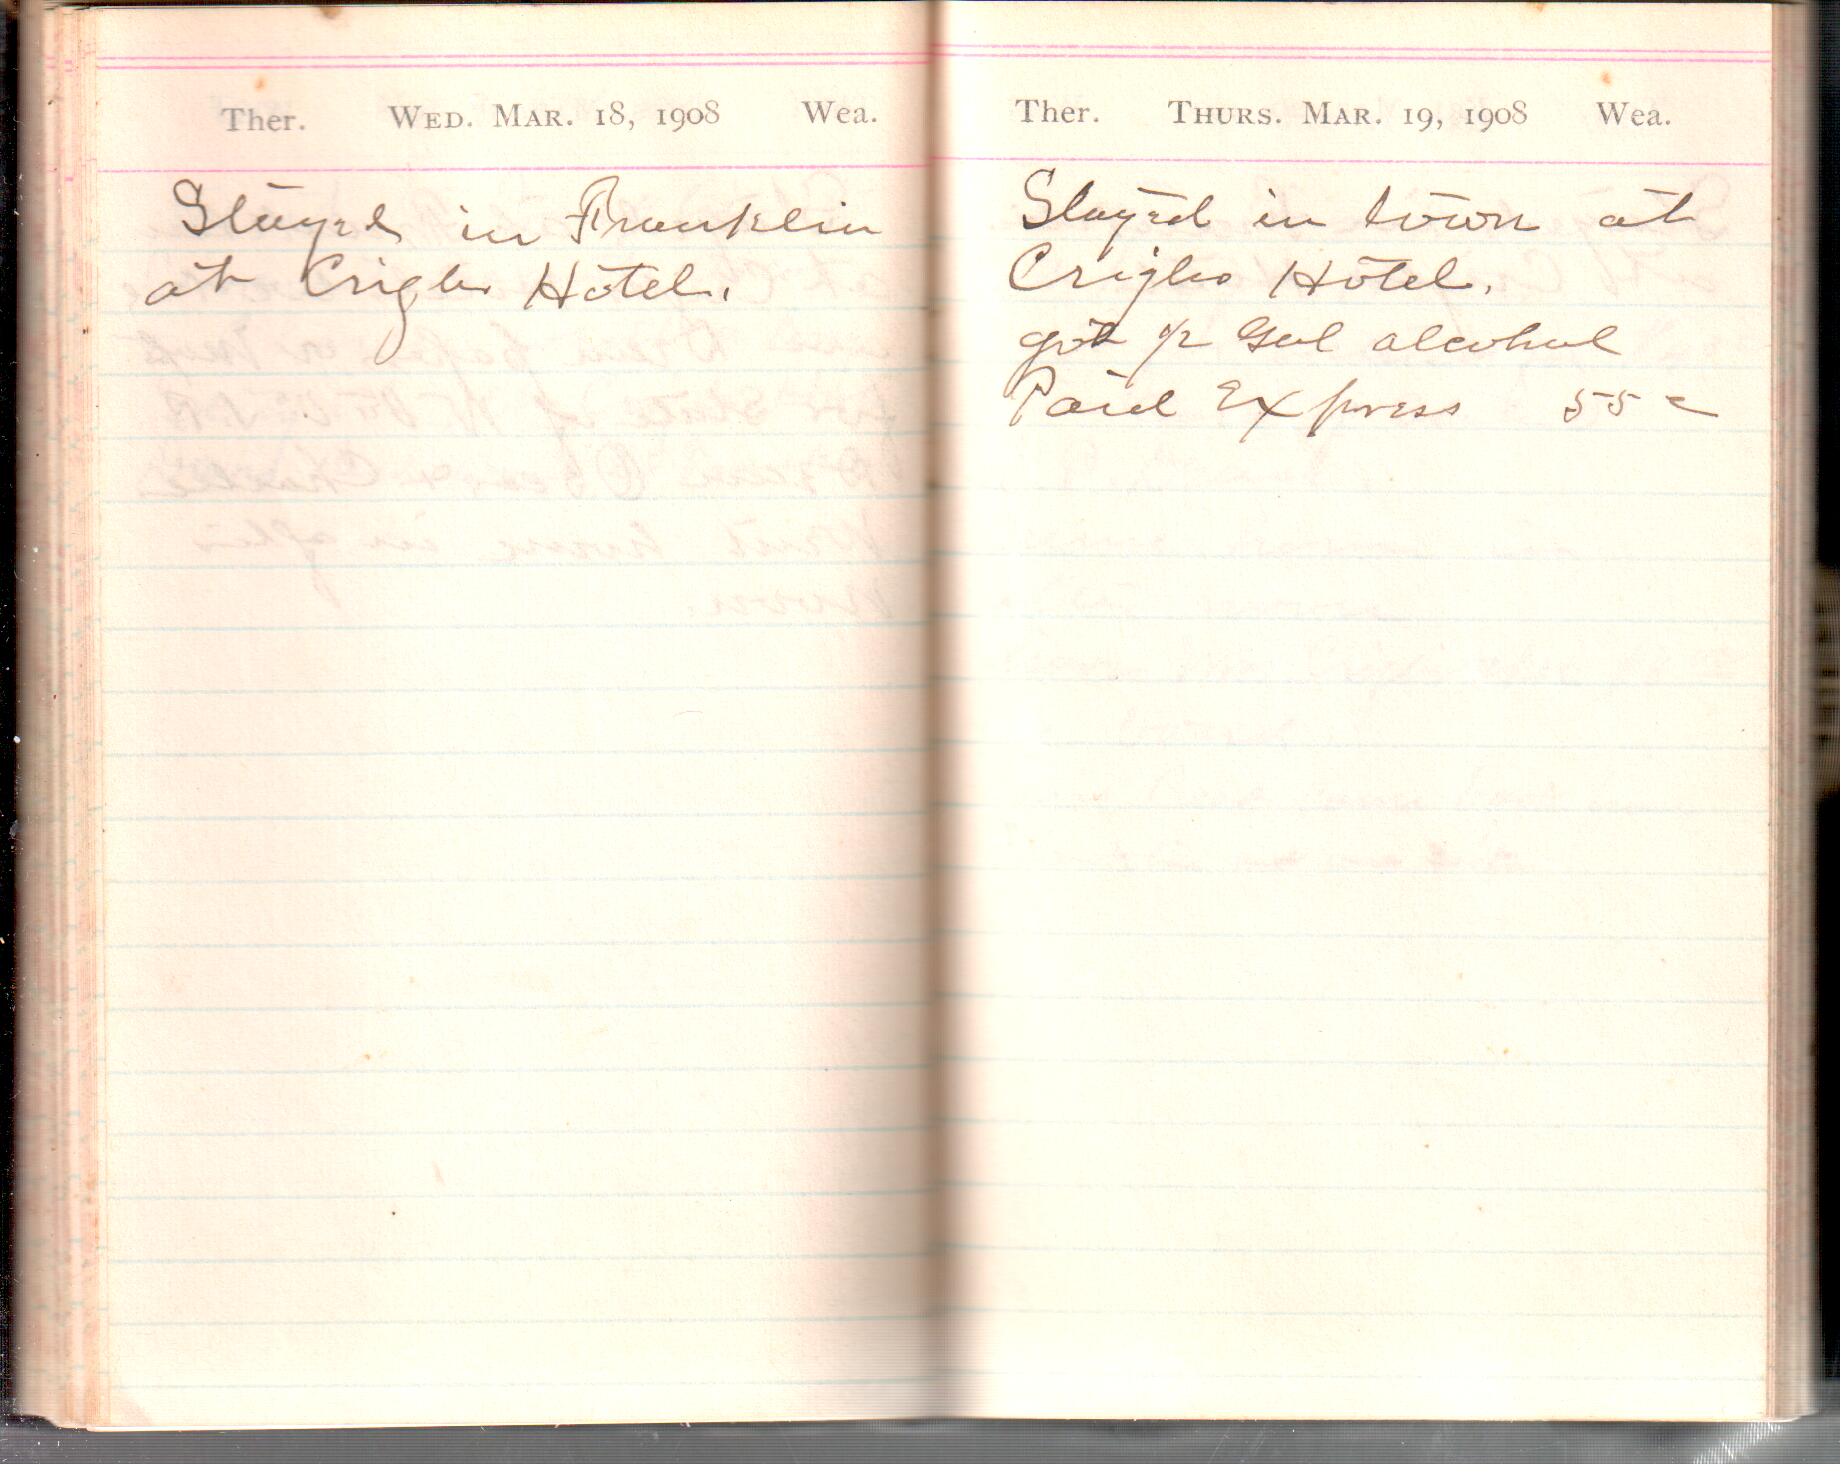 Ther. Wed. Mar. 18, 1908 Wea.
Stayed in Franklin
at Crigler Hotel.
Ther. Thurs. Mar. 19, 1908 Wea.
Stayed in town at
Hotel.
got 1/2 Gal alcohol
Paid Express 55 c